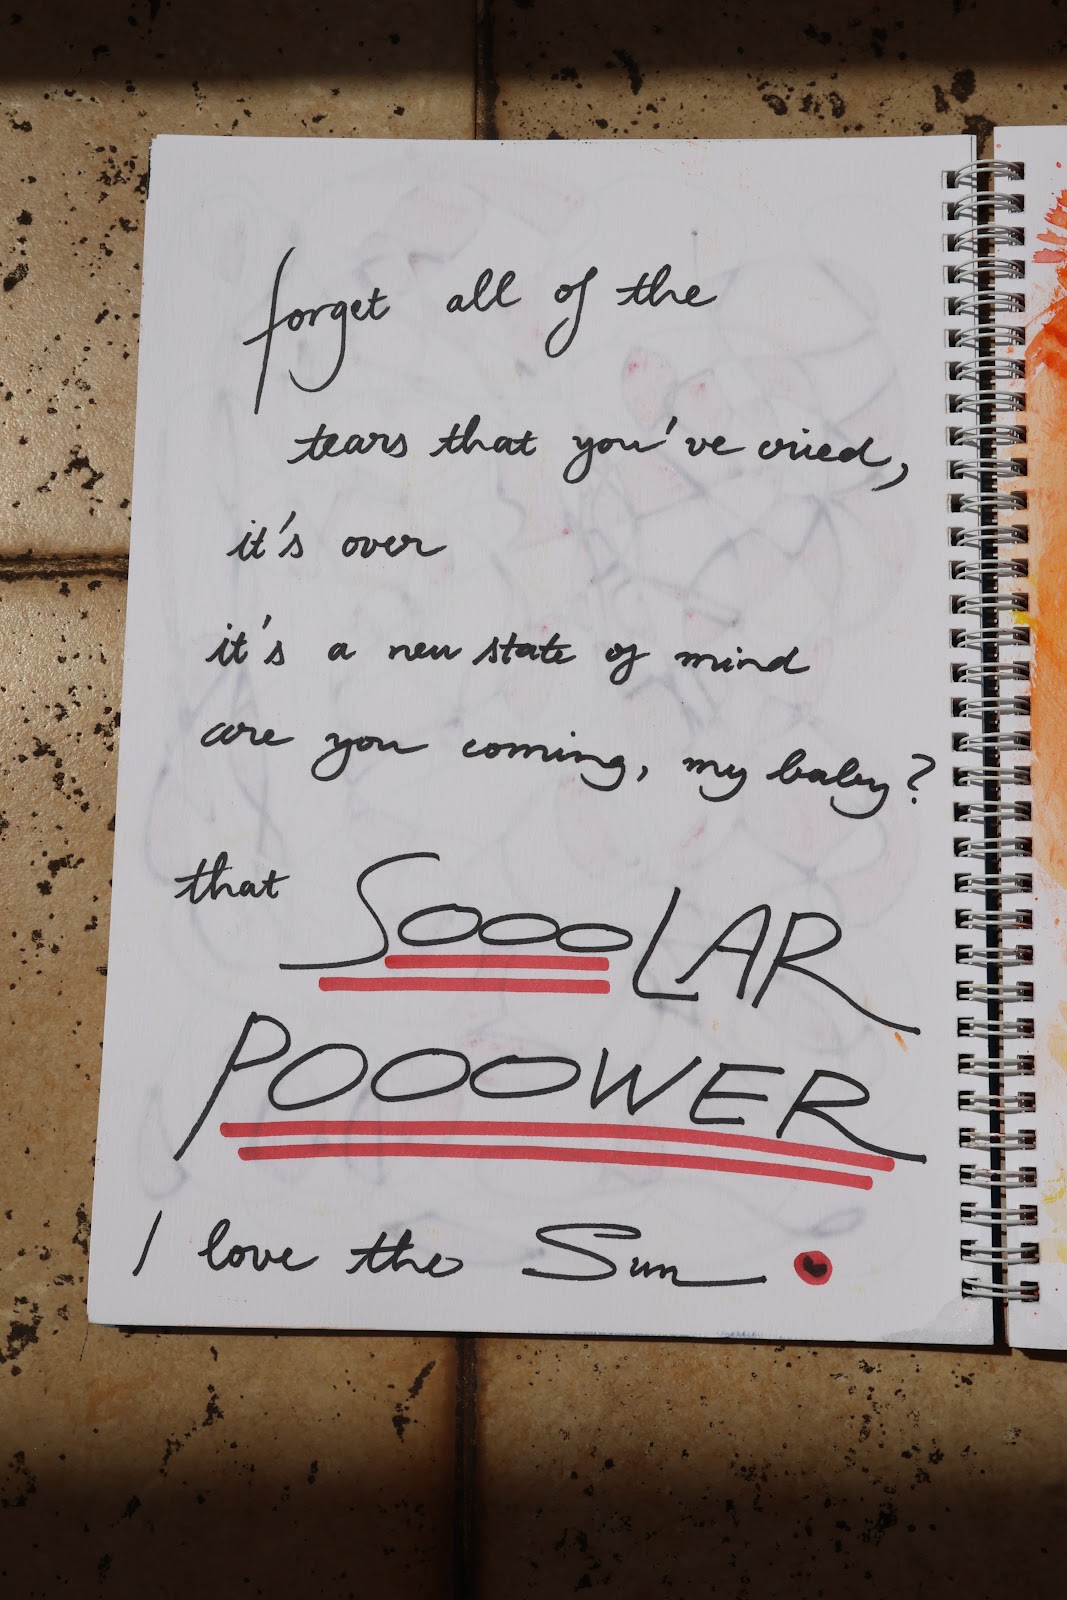 forget all of the
tears that you've cried,
it's over
it's a new state of mind
are you coming, my baby?
that SOOOLAR
POOOWER
I love the Sun